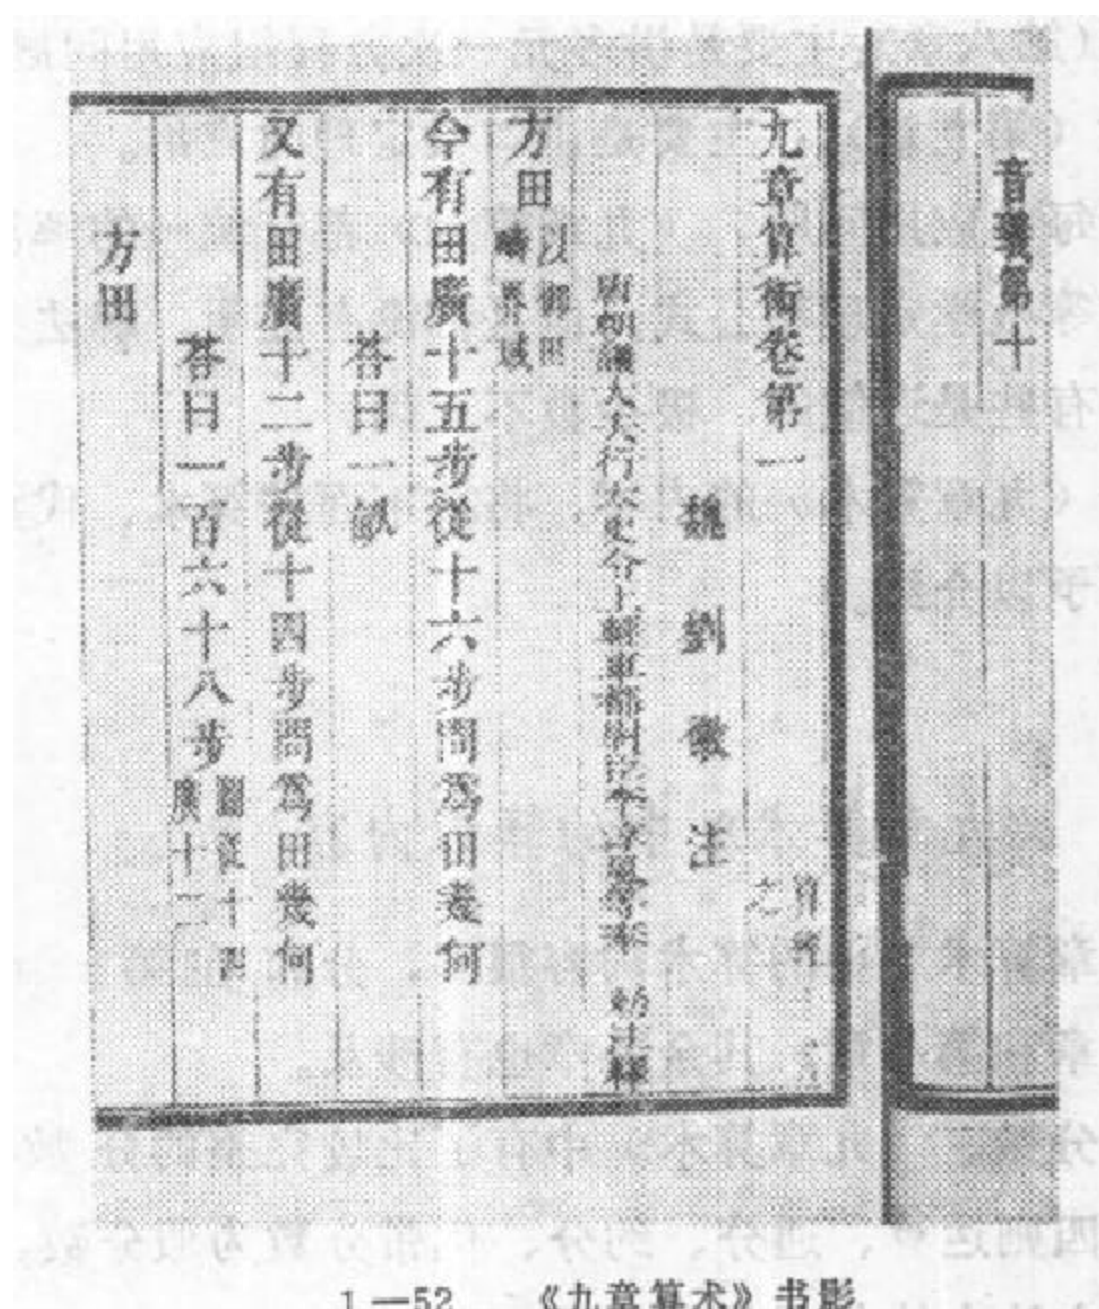 音義第十
九章算術卷第一
算經
之
魏劉徽注
唐朝議大夫行太史令上輕車都尉臣李淳風等奉 勑注釋
方田以御田疇界域
今有田廣十五步從十六步問為田幾何
荅曰一畝
又有田廣十二步從十四步問為田幾何
荅曰一百六十八步圖從十四廣十二
方田
1—52 《九章算术》书影